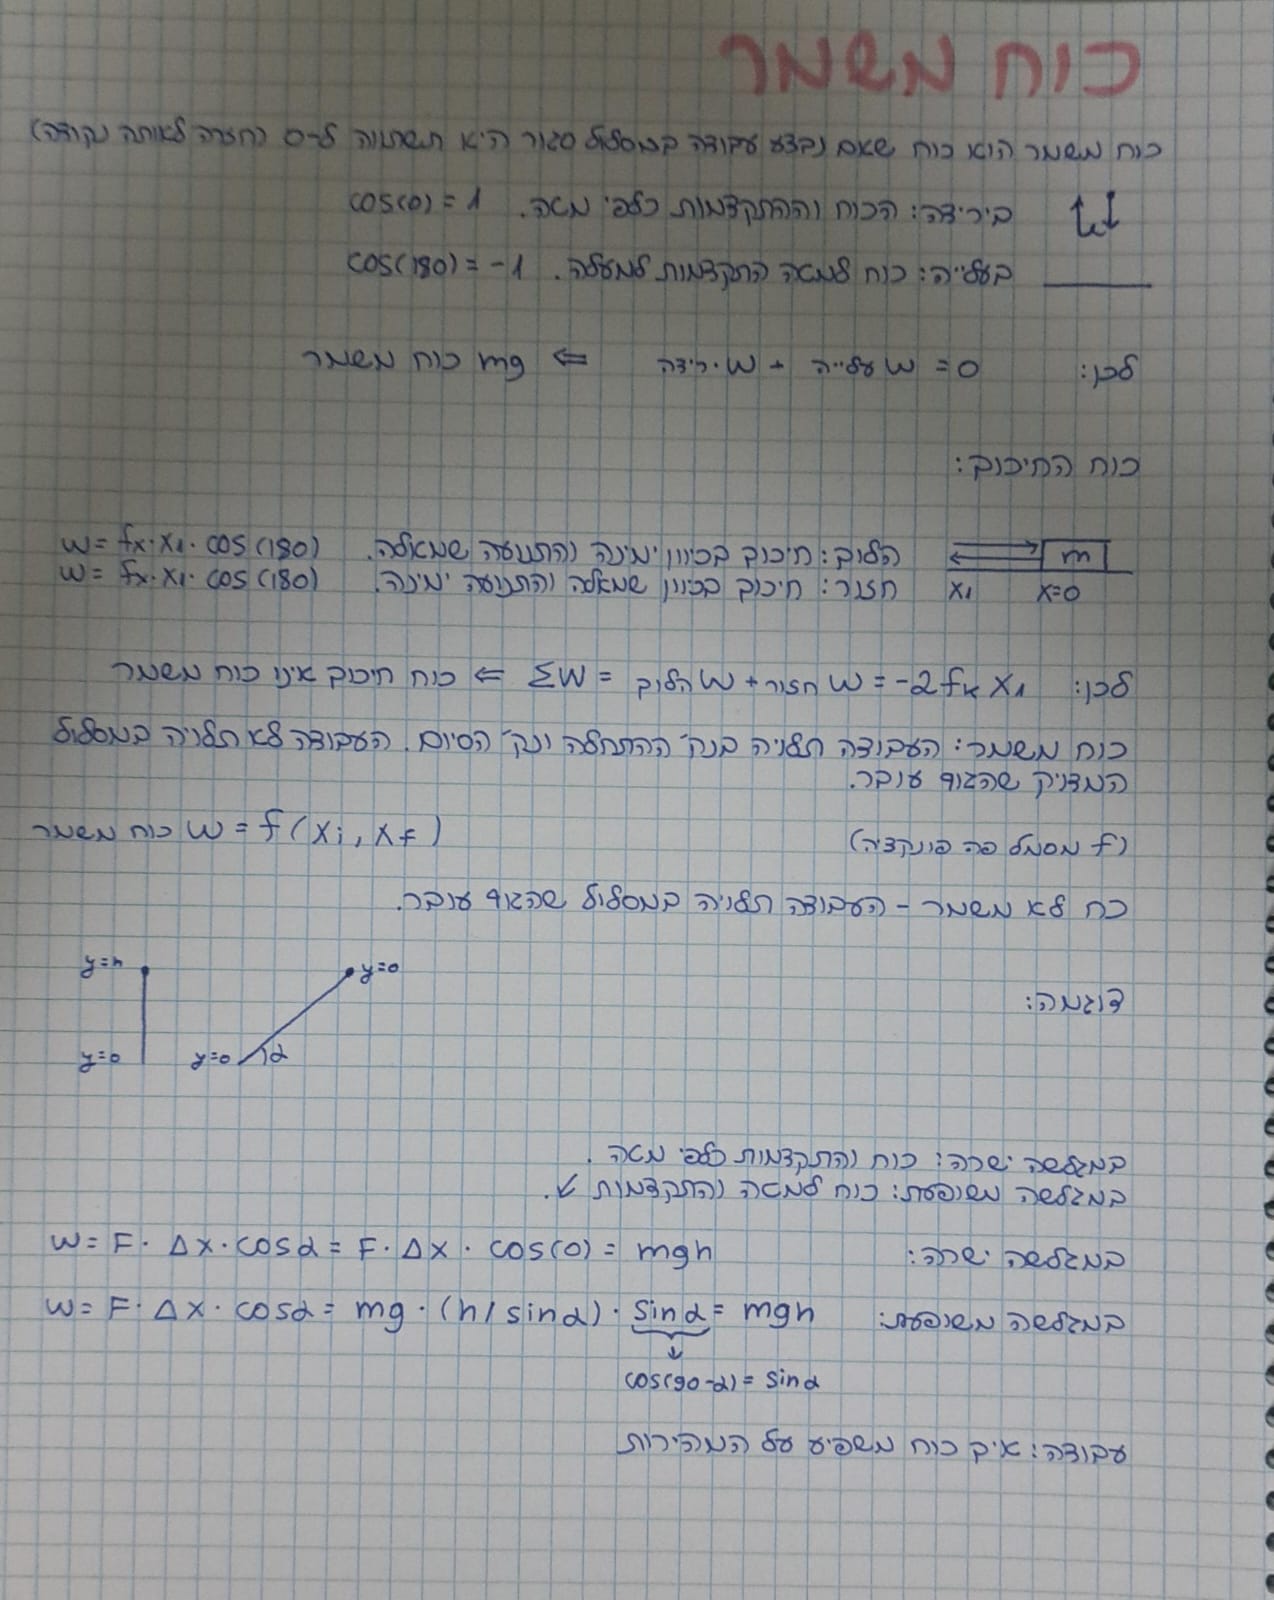 כוח משמר
כוח משמר הוא כוח שאם נבצע עבודה במסלול סגור היא תשתווה ל-0 (חזרה לאותה נקודה)
בירידה: הכוח וההתקדמות כלפי מטה. cos(0) = 1
בעלייה: כוח למטה התקדמות למעלה. cos(180) = -1
לכן: W ירידה + W עלייה = 0 ⇐ mg כוח משמר
כוח החיכוך:
הלוך: חיכוך בכיוון ימינה והתנועה שמאלה. W = fk·x1·cos(180)
חזור: חיכוך בכיוון שמאלה והתנועה ימינה. W = fk·x1·cos(180)
m
x1 x=0
לכן: ΣW = W הלוך + W חזור = -2fk x1 ⇐ כוח חיכוך אינו כוח משמר
כוח משמר: העבודה תלויה בנק' ההתחלה ונק' הסיום. העבודה לא תלויה במסלול
המדויק שהגוף עובר.
(f מסמל פה פונקציה) W = f(xi, xf) כוח משמר
כח לא משמר - העבודה תלויה במסלול שהגוף עובר.
דוגמה:
y=h y=0
y=0 y=0 α
במגלשה ישרה: כוח והתקדמות כלפי מטה.
במגלשה משופעת: כוח למטה והתקדמות ↙.
במגלשה ישרה: W = F · Δx · cosα = F · Δx · cos(0) = mgh
במגלשה משופעת: W = F · Δx · cosα = mg · (h/sinα) · sinα = mgh
cos(90-α) = sinα
עבודה: איך כוח משפיע על המהירות